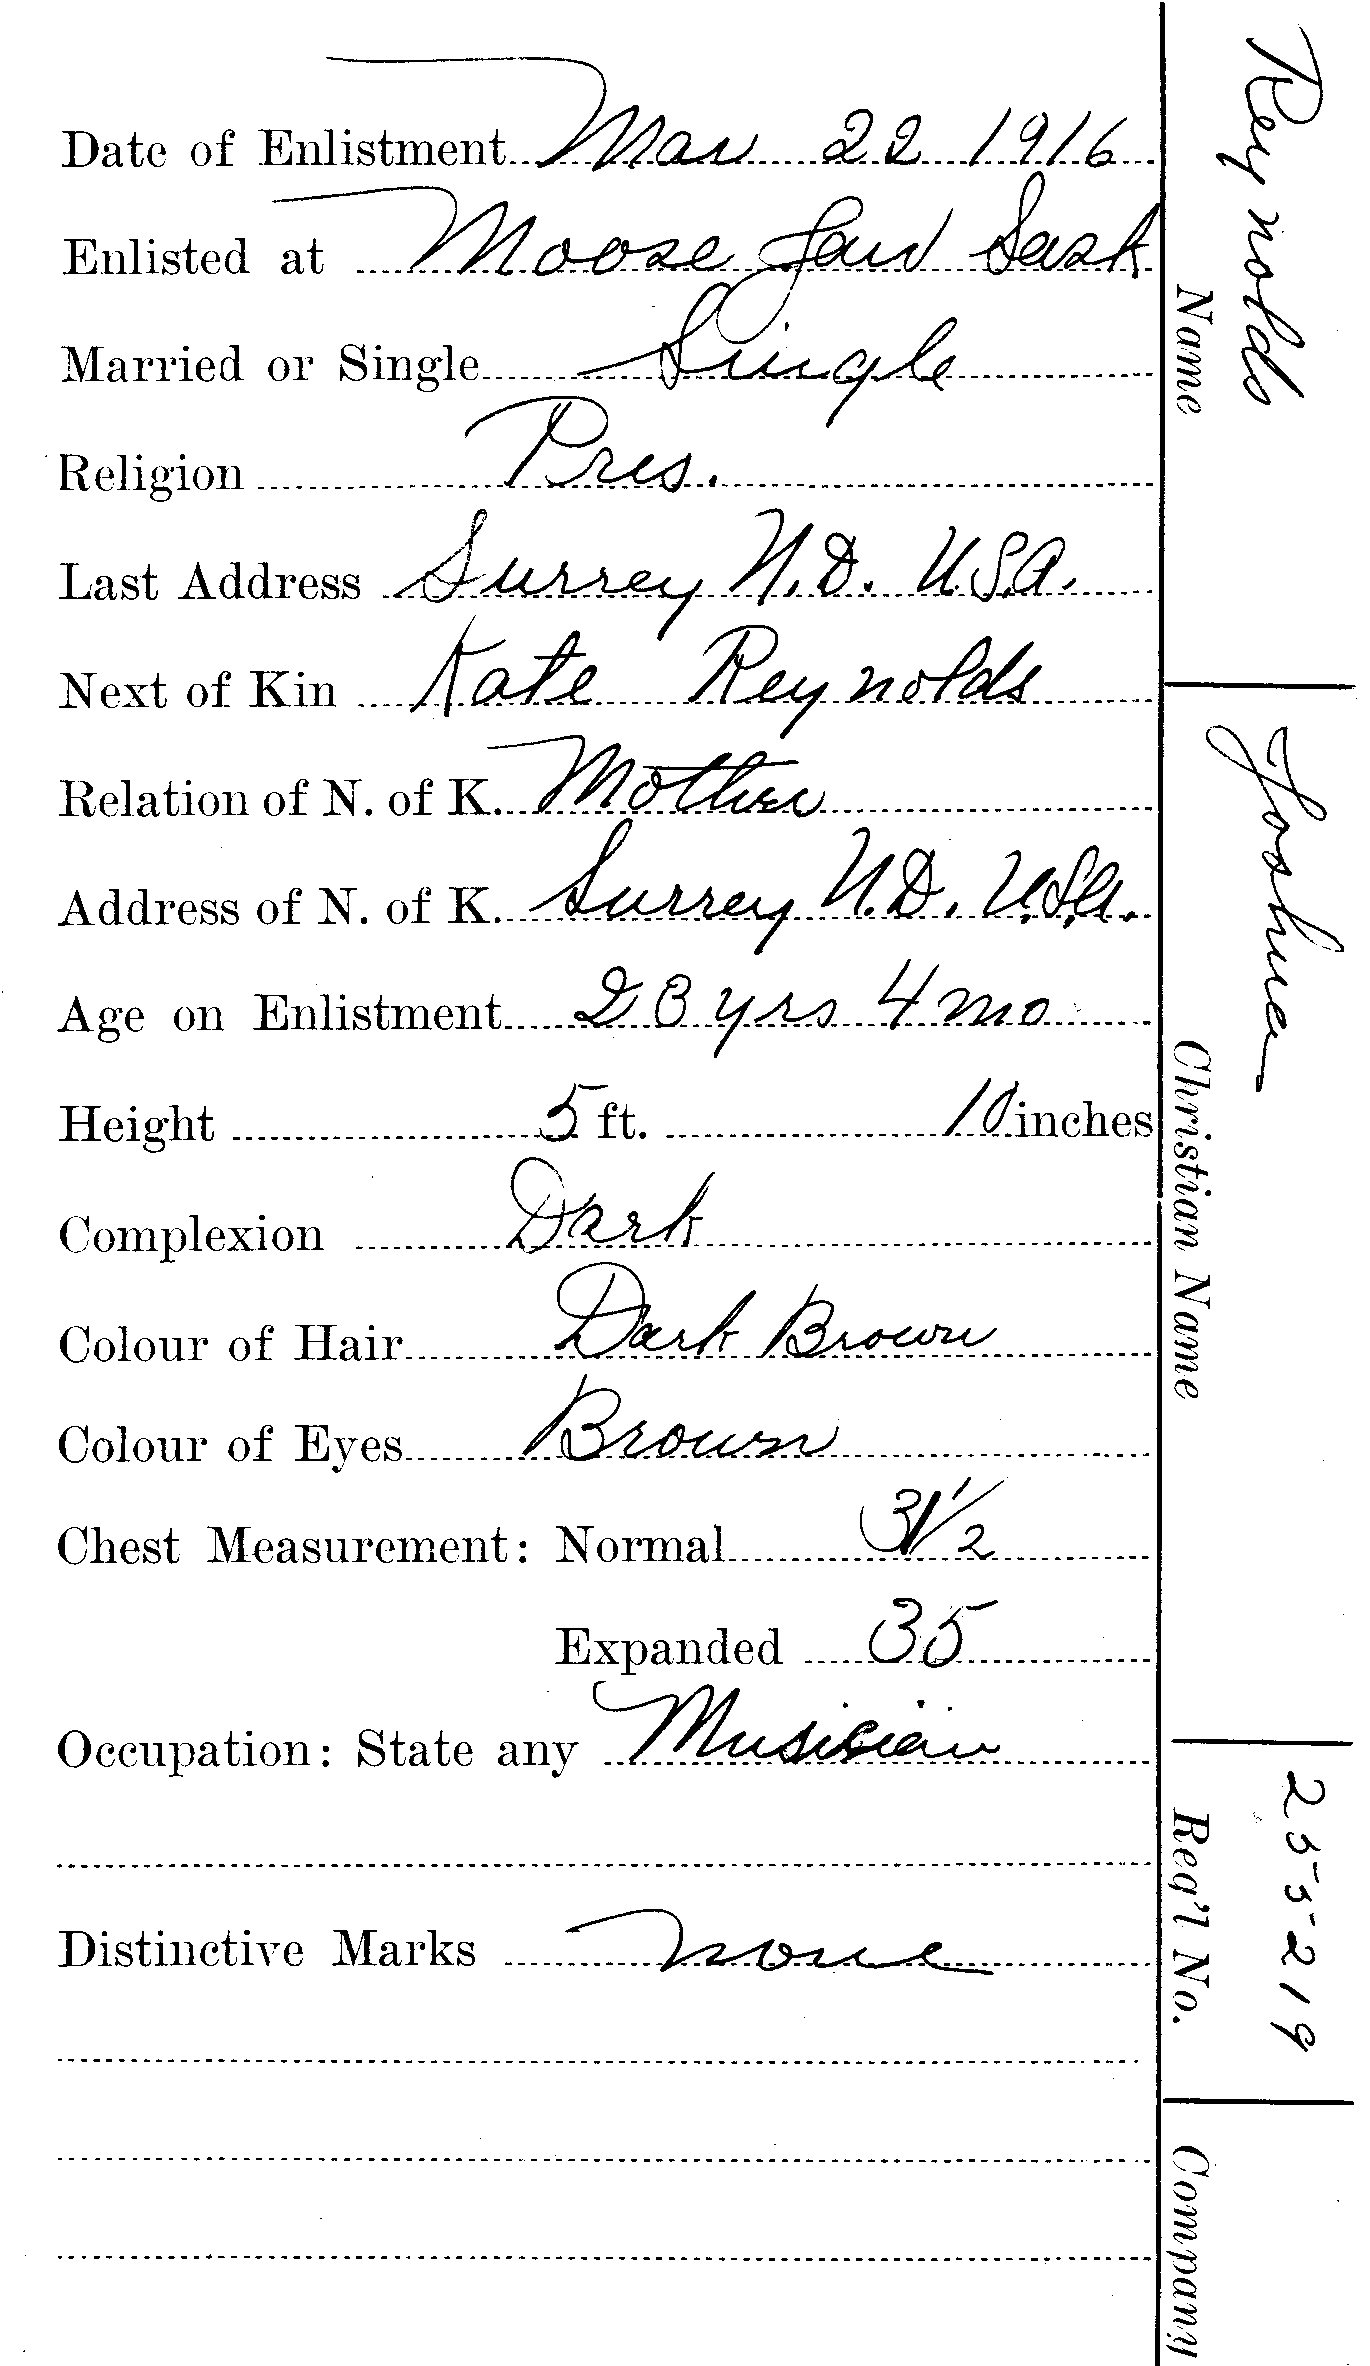 Date of Enlistment Mar 22 1916
Enlisted at Moose Jaw Sask
Married or Single Single
Religion Pres.
Last Address Surrey N.D. U.S.A.
Next of Kin Kate Reynolds
Relation of N. of K. Mother
Address of N. of K. Surrey N.D. U.S.A.
Age on Enlistment 23 yrs 4 mo
Height 5 ft. 10 inches
Complexion Dark
Colour of Hair Dark Brown
Colour of Eyes Brown
Chest Measurement: Normal 31 1/2
Expanded 35
Occupation: State any Musician
Distinctive Marks None
Reynolds
Name
Joshua
Christian Name
255219
Reg'l No.
Company